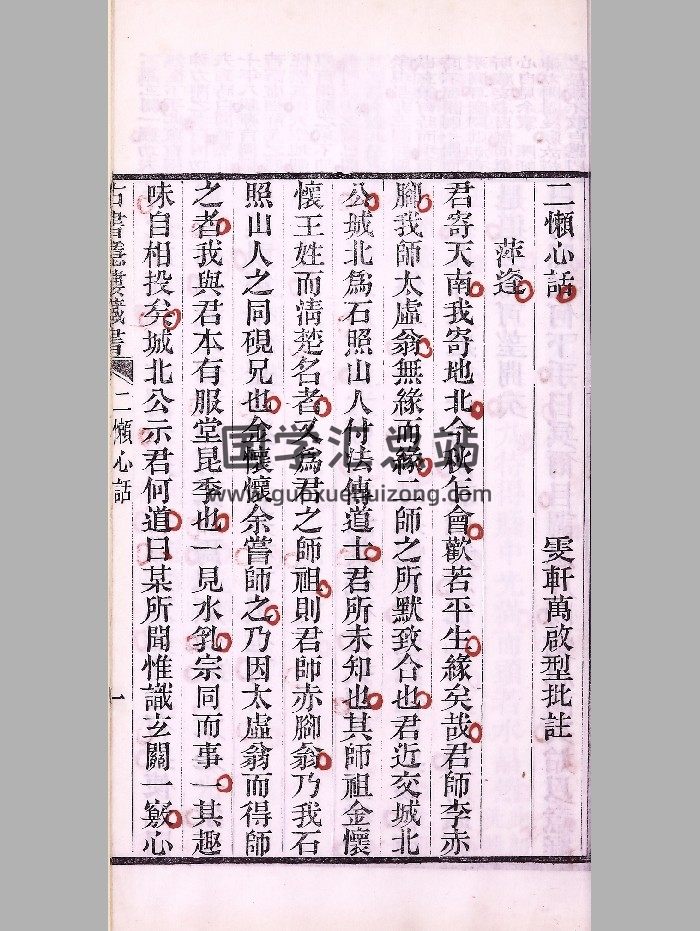 二懶心話
雯軒萬啟型批註
萍逢
君寄天南我寄地北今秋乍會歡若平生緣矣哉君師李赤
腳我師太虛翁無緣而緣二師之所默致合也君近交城北
公城北爲石照山人付法傳道士君所未知也其師祖金懷
懷王姓而清楚名者又爲君之師祖則君師赤腳翁乃我石
照山人之同硯兄也金懷懷余嘗師之乃因太虛翁而得師
之者我與君本有服堂昆季也一見水乳宗同而事一其趣
味自相投矣城北公示君何道曰某所聞惟識玄關一竅心
二懶心話
一
国学汇总站
www.guoxuehuizong.com